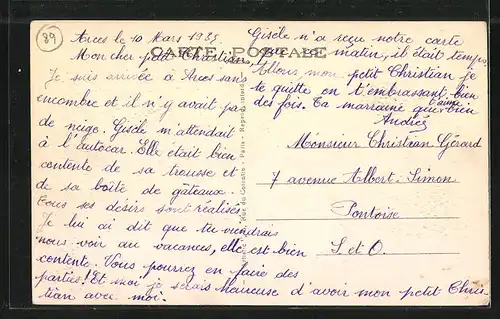 89
Arces le 10 Mars 1935.
CARTE POSTALE
Mon cher petit Christian,
Je suis arrivée à Arces sans
encombre et il n'y avait pas
de neige. Gisèle m'attendait
à l'autocar. Elle était bien
contente de sa trousse et
de sa boîte de gâteaux.
Tous ses désirs sont réalisés
Je lui ai dit que tu viendrais
nous voir au vacances, elle est bien
contente. Vous pourrez en faire des
parties! Et moi je serais heureuse d'avoir mon petit Chris
tian avec moi.
Gisèle n'a reçu notre carte
que ce matin, il était temps.
Allons, mon petit Christian je
te quitte en t'embrassant bien
des fois. Ta marraine qui t'aime bien
Andrée
Monsieur Christian Gérard
7 avenue Albert-Simon
Pontoise
S et O.
Paris